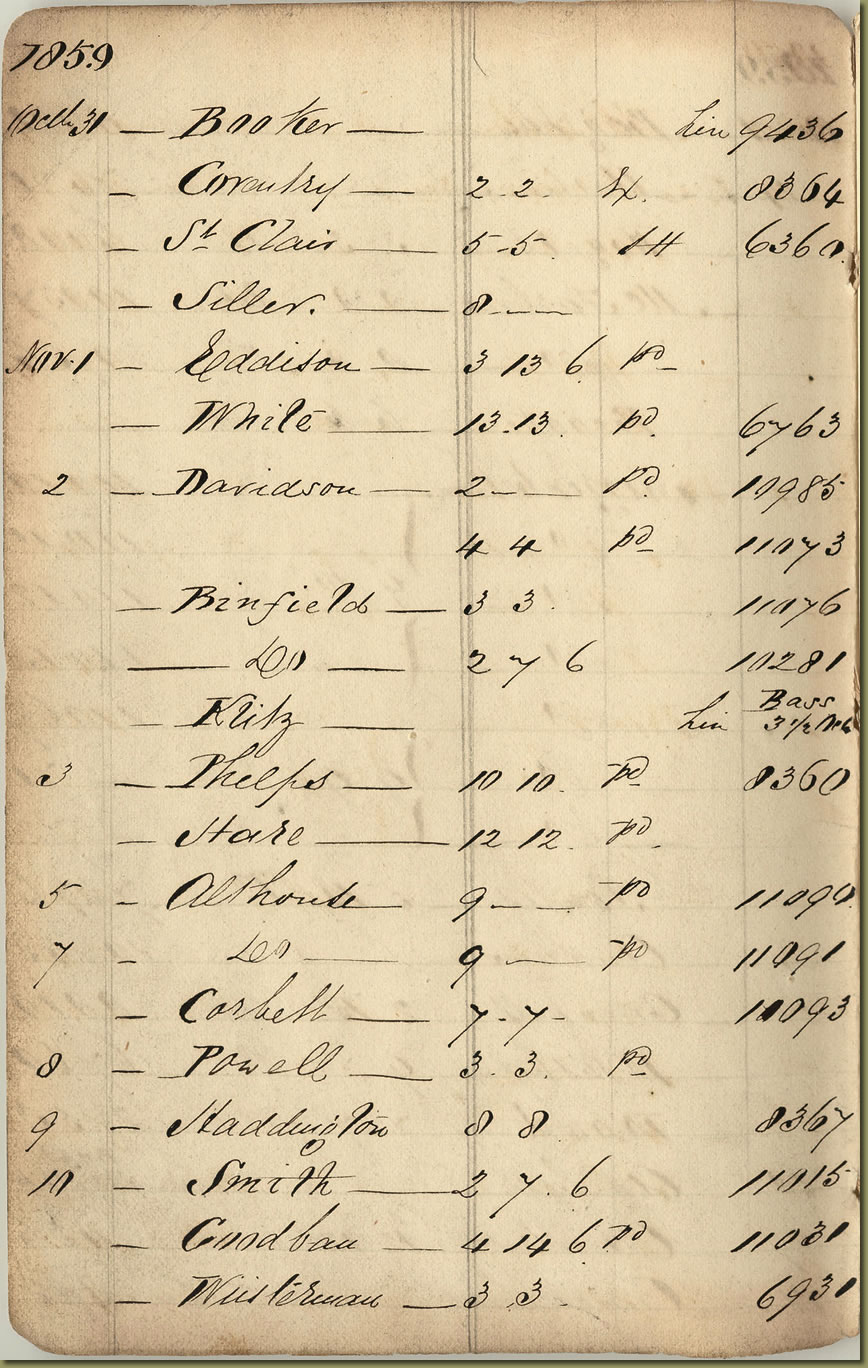 1859
Octr 31 — Booker — Lin 9436
— Coventry — 2 . 2 . 8364
— St Clair — 5 . 5 . 6360
— Siller. — 8 — —
Nov. 1 — Eddison — 3 13 6 pd
— White — 13 . 13 . pd. 6763
2 — Davidson — 2 — — pd. 10985
4 4 pd 11073
— Binfield — 3 3 . 11076
— Do — 2 7 6 10281
— Klitz — Lin Bass 3 1/2
3 — Phelps — 10 10 . pd 8360
— Hare — 12 12 . pd.
5 — Althouse 9 — — pd 11090
7 — Do — 9 — pd 11091
— Corbett — 7 . 7 - 11093
8 — Powell — 3 . 3 . pd
9 — Haddington 8 8 8367
10 — Smith — 2 7 . 6 11015
— Goodban — 4 14 6 pd 11031
— Wüsterman — 3 3 . 6931